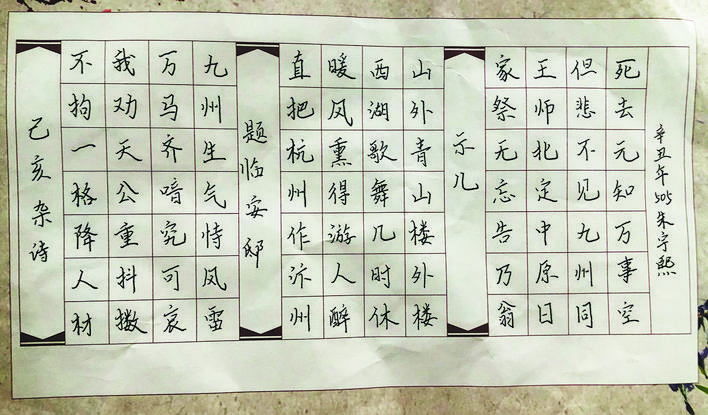 辛丑年505朱宇熙
死去元知万事空
但悲不见九州同
王师北定中原日
家祭无忘告乃翁
示儿
山外青山楼外楼
西湖歌舞几时休
暖风熏得游人醉
直把杭州作汴州
题临安邸
九州生气恃风雷
万马齐喑究可哀
我劝天公重抖擞
不拘一格降人材
己亥杂诗